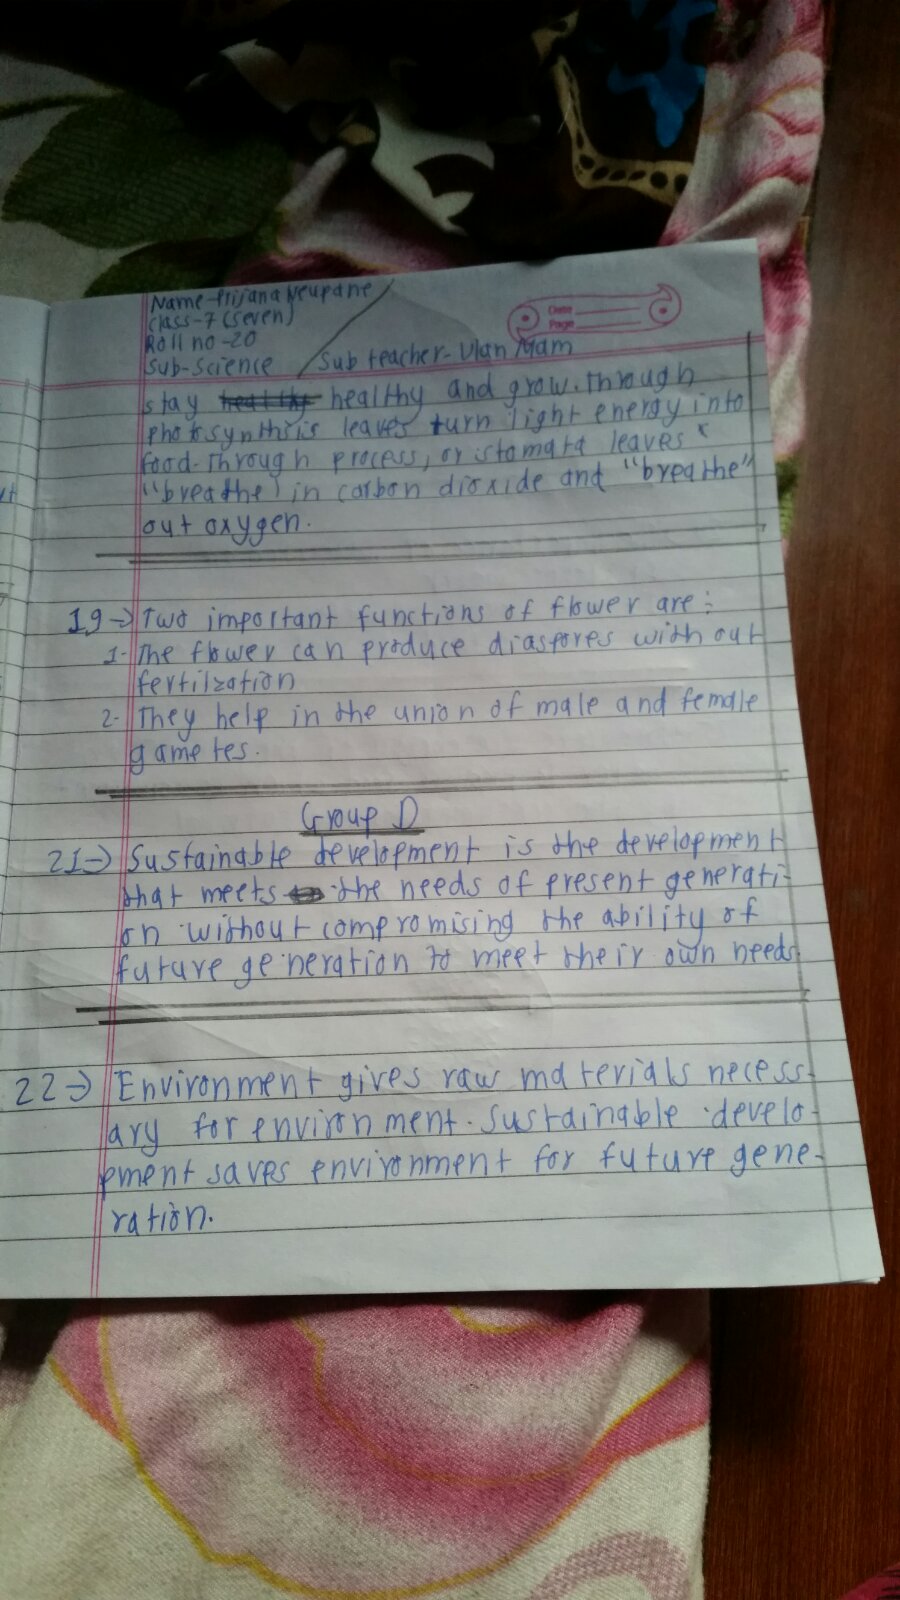 Name-Prijana Neupane
class-7 (seven)
Roll no-20
Sub-science Sub teacher- Mam
Date
Page
stay healthy and grow. Through
photosynthsis leaves turn light energy into
food. Through process, or stomata leaves
"breathe) in carbon dioxide and "breathe"
out oxygen.
19→ Two important functions of flower are:
1- The flower can produce diaspores without
fertilzation
2- They help in the union of male and female
gametes.
Group D
21→ Sustainable development is the development
that meets the needs of present generati-
on without compromising the ability of
future generation to meet their own needs
22→ Environment gives raw materials necess-
ary for environment. Sustainable develo-
pment saves environment for future gene-
ration.